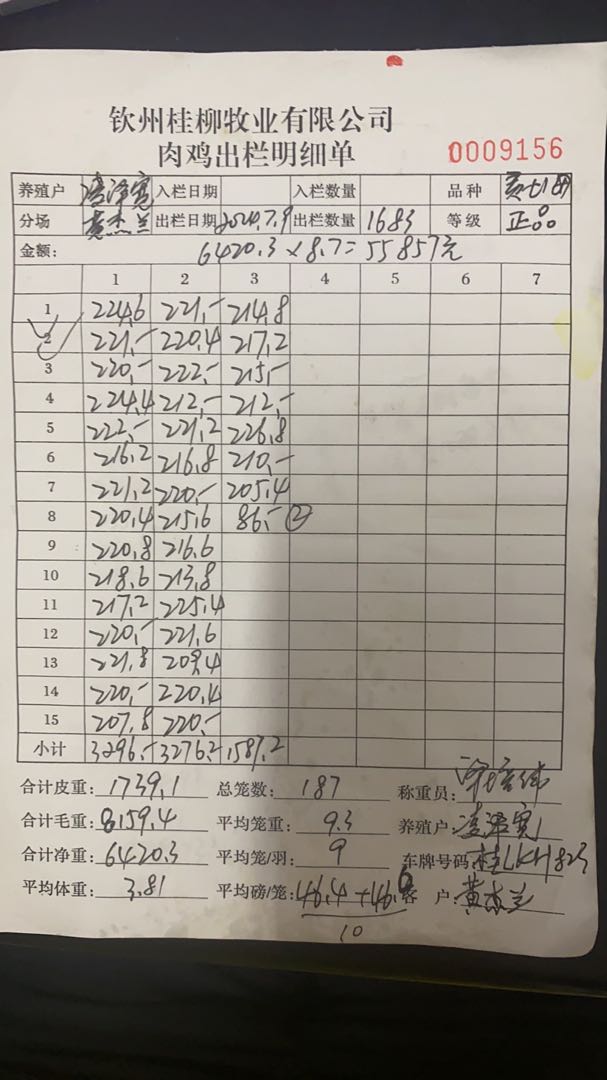 钦州桂柳牧业有限公司
肉鸡出栏明细单 0009156
养殖户 凌泽宽 入栏日期 入栏数量 品种
分场 黄杰兰 出栏日期 2024.7.9 出栏数量 1683 等级 正品
金额: 6420.3×8.7=55857元
1 2 3 4 5 6 7
1 224.6 221.- 214.8
2 221.- 220.4 217.2
3 220.- 222.- 215.-
4 224.4 212.- 212.-
5 222.- 221.2 226.8
6 216.2 216.8 210.-
7 221.2 220.- 205.4
8 220.4 215.6 86.- ②
9 220.8 216.6
10 218.6 213.8
11 217.2 225.4
12 220.- 221.6
13 221.8 209.4
14 220.- 220.4
15 207.8 220.-
小计 3296.- 3276.2 1587.2
合计皮重: 1739.1 总笼数: 187 称重员:
合计毛重: 8159.4 平均笼重: 9.3 养殖户: 凌泽宽
合计净重: 6420.3 平均笼/羽: 9 车牌号码: 桂LKH823
平均体重: 3.81 平均磅/笼: 46.4+46.6 客户: 黄杰兰
10